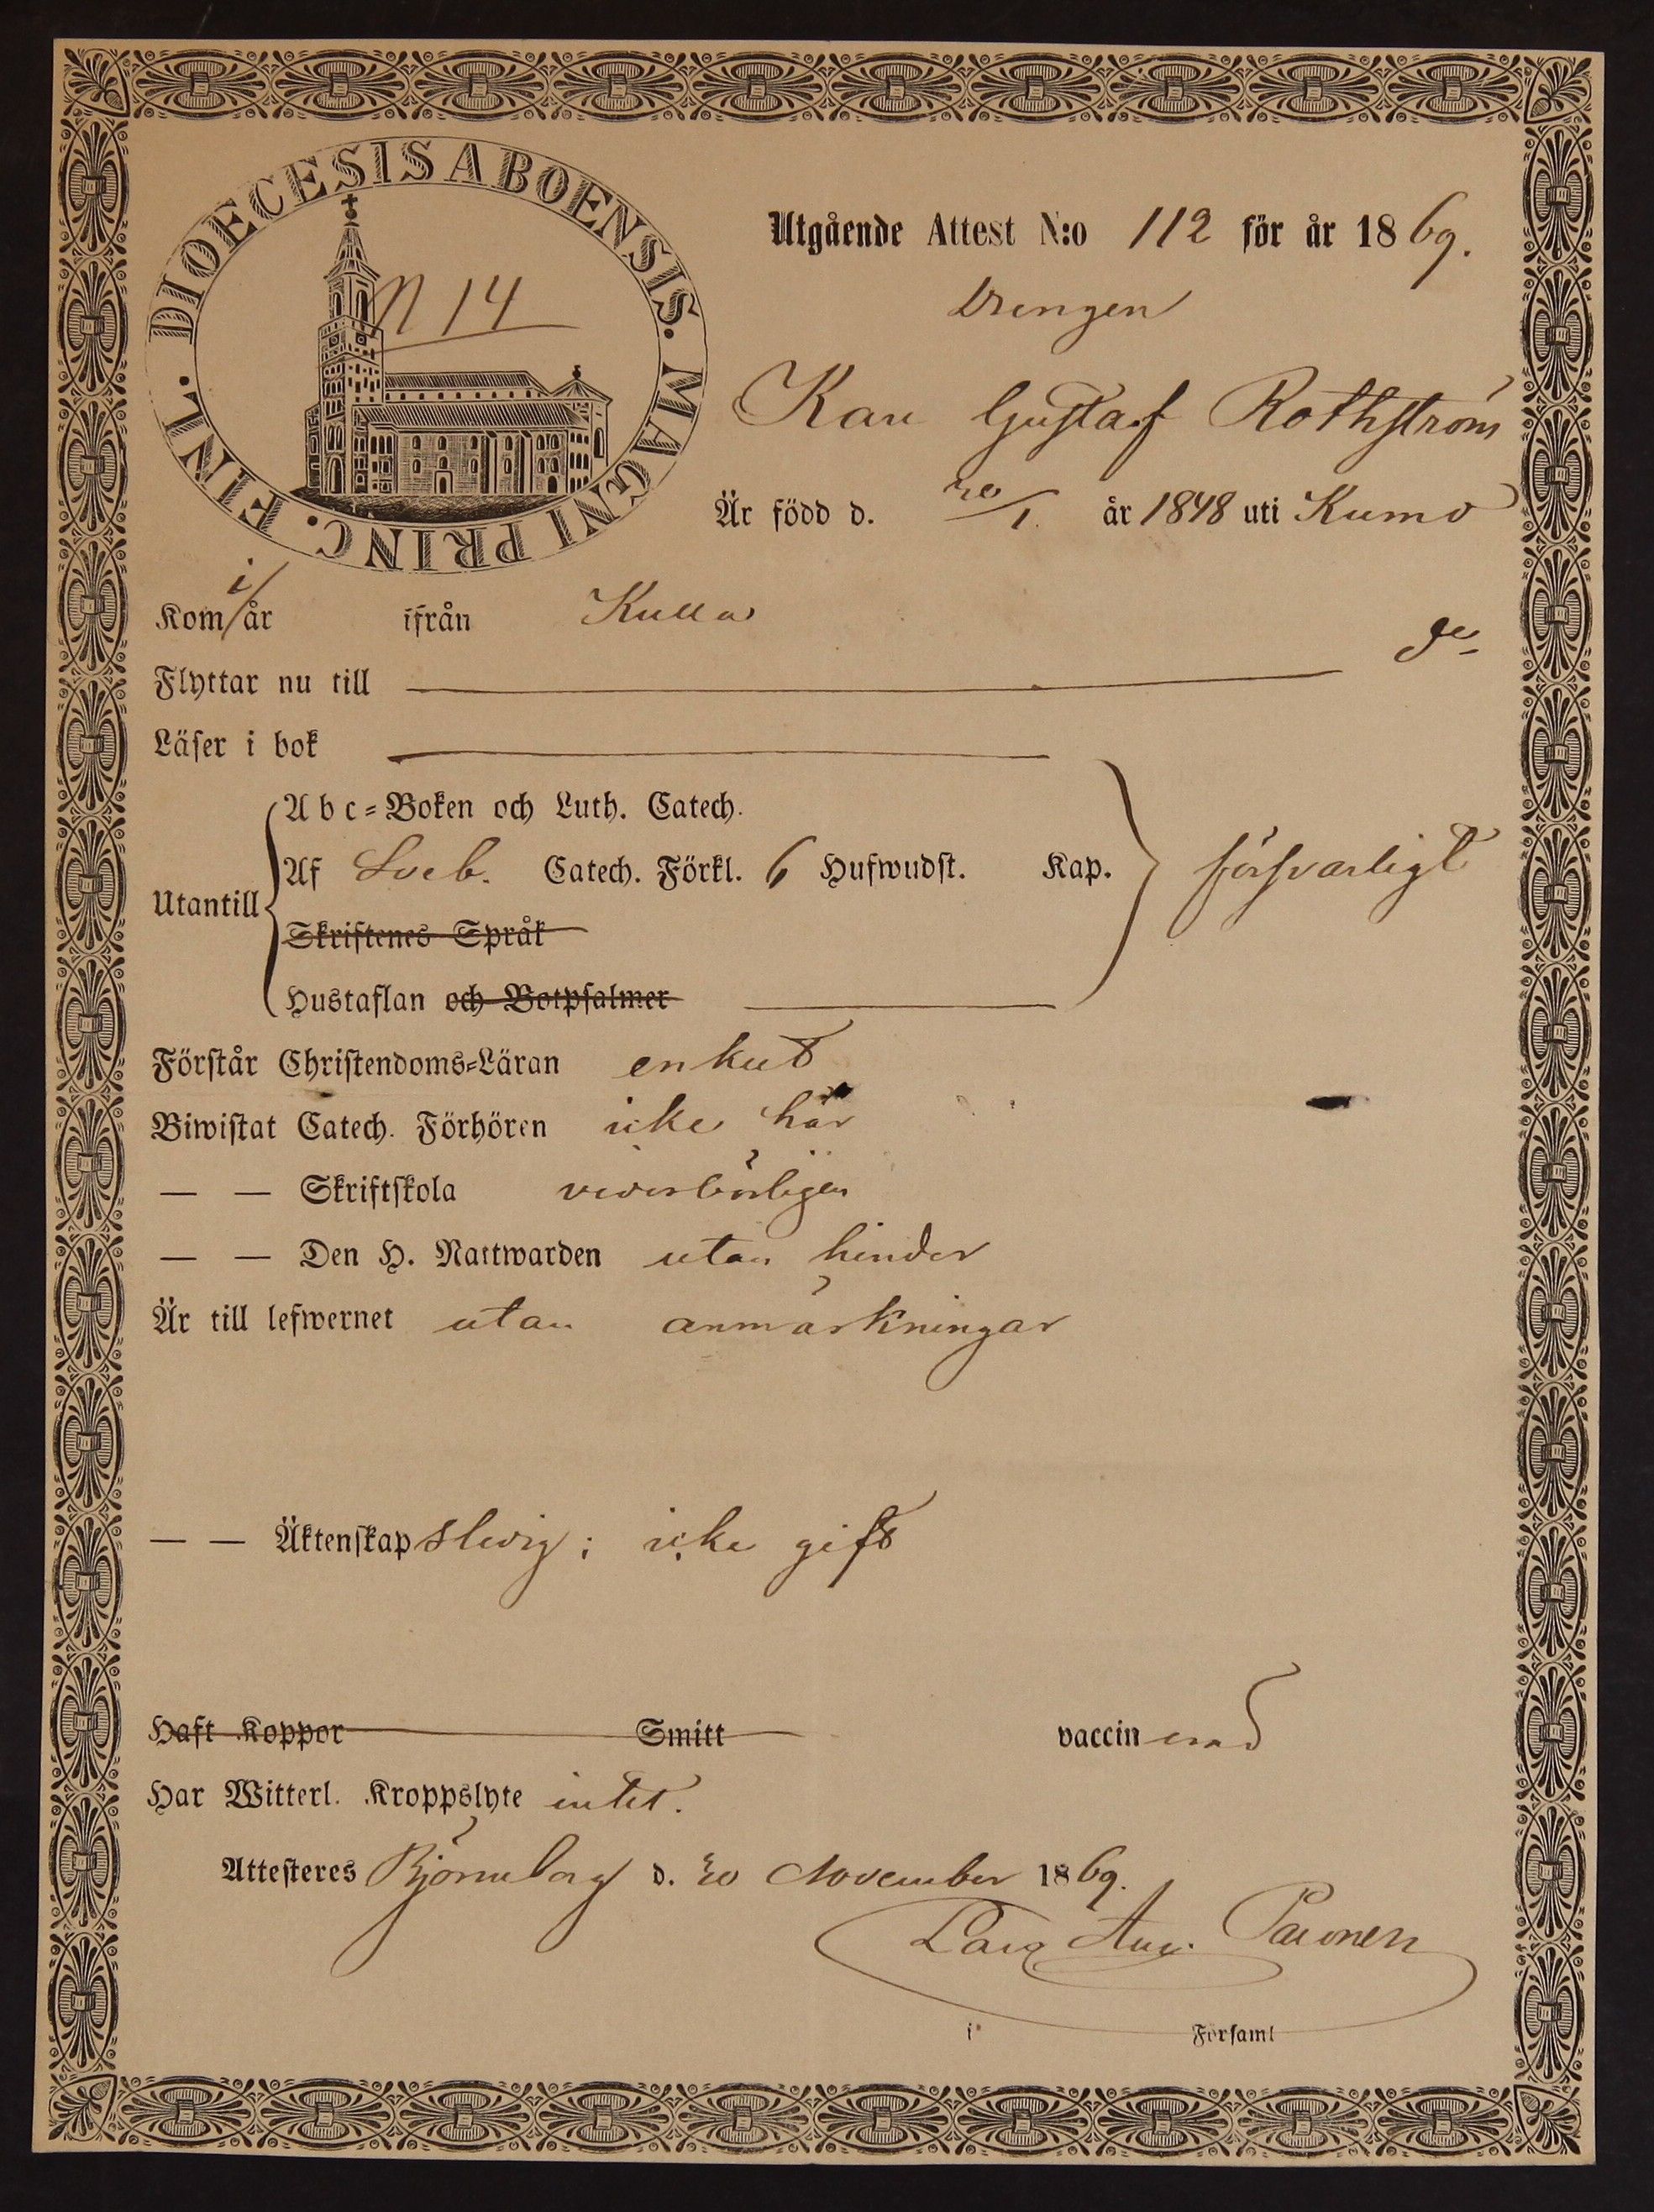 DIOECESIS ABOENSIS. MAGNI PRINC. FINL.
N 14
Utgående Attest N:o 112 för år 1869.
Drengen
Karl Gustaf Rothström
Är född d. 20/1. år 1848 uti Kumo
Kom i år ifrån Kulla
Flyttar nu till
Läser i bok
Utantill
A b c=Boken och Luth. Catech.
Af Sveb. Catech. Förkl. 6 Hufwudst. Kap.
försvarligt
Skriftenes Språk
Hustaflan och Botpsalmer
Förstår Christendoms=Läran enkelt
Biwistat Catech. Förhören icke här
— — Skriftskola vederbörligen
— — Den H. Nattwarden utan hinder
Är till lefwernet utan anmärkningar
— — Äktenskap sledig; icke gift
Haft Koppor Smitt vaccinerad
Har Witterl. Kroppslyte intet.
Attesteres Björneborg d. 20 November 1869.
Lars Aug. Paronen
i Församl